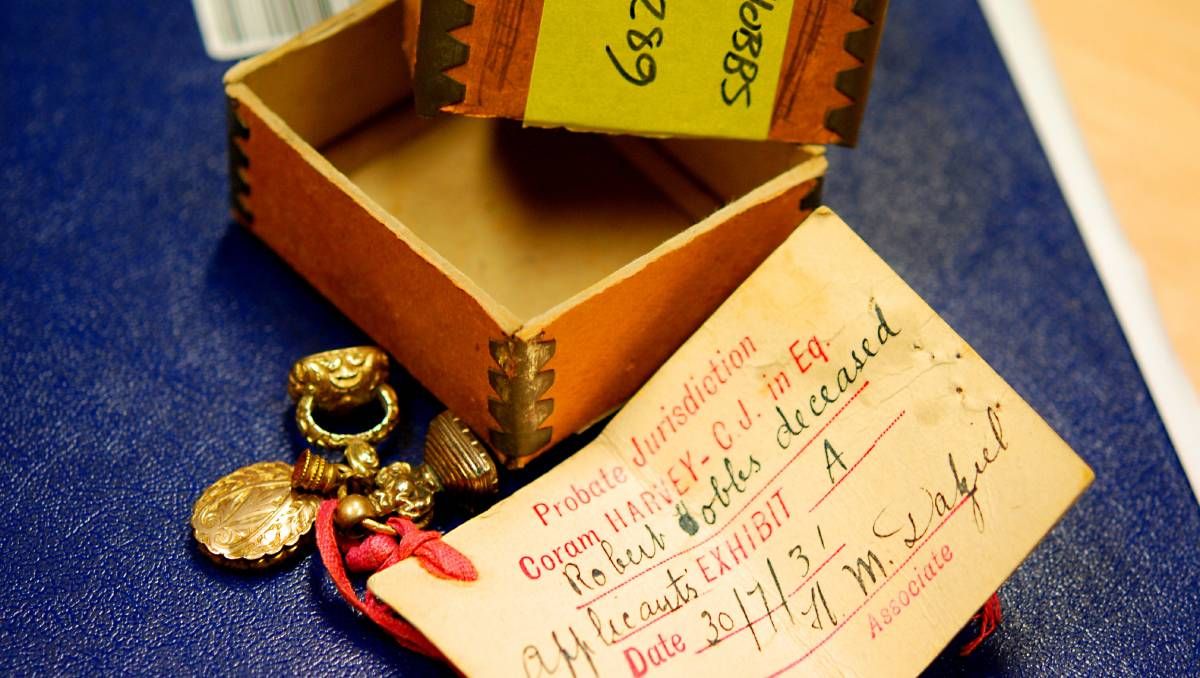 289
Probate Jurisdiction
Coram HARVEY-C.J. in Eq.
Robert deceased
applicants EXHIBIT A
Date 30/7/31
H. M. Dalziel
Associate